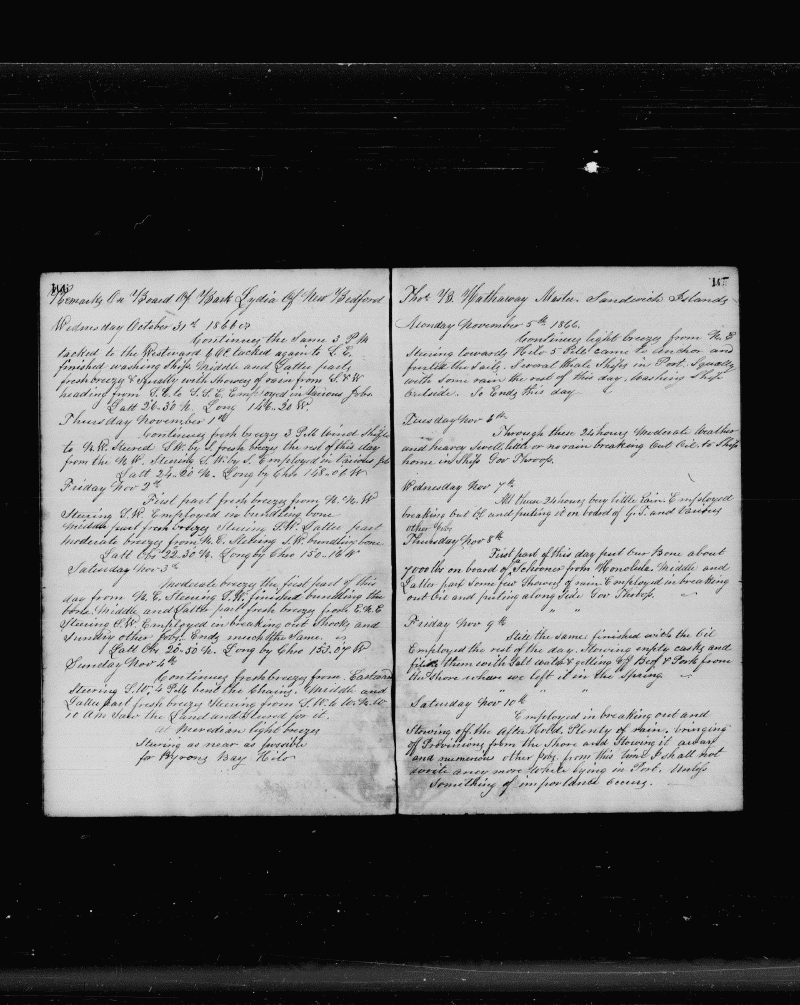 146
Remarks On Board Of Bark Lydia Of New Bedford
Wednesday October 31st 1866
Continues the Same 3 P M
tacked to the Westward 6 Oct tacked again to S. E.
finished washing Ship. Middle and Latter part
fresh breeze & Squally with Showers of rain from S & W
heading from S.E. to S.S.E. Employed in Various Jobs
Latt 26.30 N. Long 146..30 W
Thursday November 1st
Continues fresh breeze 3 P.M. wind Shifts
to N.W. Steered S.W. by S. fresh breeze the rest of this day
from the N.W. Steering S.W. by S. Employed in Various jobs
Latt 24..20 N. Long by Chro 148.01 W
Friday Nov 2nd
First part fresh breeze from N. N. W
Steering S.W. Employed in bundling bone
Middle part fresh breeze Steering S.W. Latter part
moderate breeze from N.E. Steering S.W. bundling bone
Latt Obs 22.30 N. Long by Chro 150..16 W
Saturday Nov 3rd
Moderate breeze the first part of this
day from N. E. Steering S.W. finished bundling the
bone. Middle and Latter part fresh breeze from E.N.E
Steering S.W. Employed in breaking out Shooks and
Sundry other Jobs. Ends much the Same.
Latt Obs 20..50 N. Long by Chro 153.07 W
Sunday Nov 4th
Continues fresh breeze from Eastward
Steering S.W. 4 P.M. bent the Chains. Middle and
Latter part fresh breeze Steering from S.W. to W.N.W
10 A.M. Saw the Land and Steered for it.
at Meredian light breezes
Stering as near as possible
for Byrons Bay Hilo
147
Thos. B. Hathaway Master. Sandwich Islands
Monday November 5th 1866.
Continues light breezes from N. E
Stering towards Hilo 5 P.M. came to anchor and
furled the Sails. Several Whale Ships in Port. Squally
with some rain the rest of this day. washing Ship
outside. So Ends this day
Tuesday Nov 6th
Through these 24 hours Moderate Weather
and heavey Swell. little or no rain breaking out Oil to Ship
home in Ship Gov Throop.
Wednesday Nov 7th
All these 24 hours buy little rain. Employed
breaking out Oil and putting it on board of G. T. and Various
other jobs
Thursday Nov 8th
First part of this day put our Bone about
7000 lbs on board of Schooner from Honolulu. Middle and
Latter part some few Showers of rain Employed in breaking
out Oil and puting along Side Gov Throop.
Friday Nov 9th
Still the same finished with the Oil
Employed the rest of the day. Stowing empty casks and
filling them with Salt water & getting off Beef & Pork from
the Shore whare we left it in the Spring.
Saturday Nov 10th
Employed in breaking out and
Stowing off the after Hold. Plenty of rain. bringing
off Provisions from the Shore and Stowing it away
and numerious other jobs. from this time I shall not
write aney more While lying in Port. Unless
Something of importance occurs.